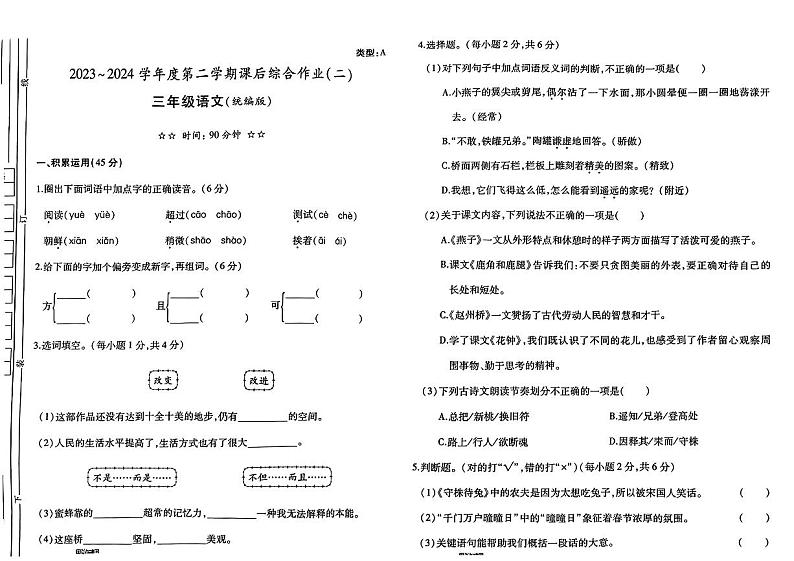 类型:A
2023~2024学年度第二学期课后综合作业(二)
三年级语文(统编版)
☆☆ 时间:90分钟 ☆☆
一、积累运用(45分)
1.圈出下面词语中加点字的正确读音。(6分)
阅读(yuè yüè) 超过(cāo chāo) 测试(cè chè)
朝鲜(xiān xiǎn) 稍微(shāo shào) 挨着(āi ái)
2.给下面的字加个偏旁变成新字,再组词。(6分)
方{______( ) 且{______( ) 可{______( )
______( ) ______( ) ______( )
3.选词填空。(每小题1分,共4分)
改变 改进
(1)这部作品还没有达到十全十美的地步,仍有__________的空间。
(2)人民的生活水平提高了,生活方式也有了很大__________。
不是……而是…… 不但……而且……
(3)蜜蜂靠的__________超常的记忆力,__________一种我无法解释的本能。
(4)这座桥__________坚固,__________美观。
线
订
装
下
4.选择题。(每小题2分,共6分)
(1)对下列句子中加点词语反义词的判断,不正确的一项是( )
A.小燕子的翼尖或剪尾,偶尔沾了一下水面,那小圆晕便一圈一圈地荡漾开
去。(经常)
B.“不敢,铁罐兄弟。”陶罐谦虚地回答。(骄傲)
C.桥面两侧有石栏,栏板上雕刻着精美的图案。(精致)
D.我想,它们飞得这么低,怎么能看到遥远的家呢?(附近)
(2)关于课文内容,下列说法不正确的一项是( )
A.《燕子》一文从外形特点和休憩时的样子两方面描写了活泼可爱的燕子。
B.课文《鹿角和鹿腿》告诉我们:不要只贪图美丽的外表,要正确对待自己的
长处和短处。
C.《赵州桥》一文赞扬了古代劳动人民的智慧和才干。
D.学了课文《花钟》,我们既认识了不同的花儿,也感受到了作者留心观察周
围事物、勤于思考的精神。
(3)下列古诗文朗读节奏划分不正确的一项是( )
A.总把/新桃/换旧符 B.遥知/兄弟/登高处
C.路上/行人/欲断魂 D.因释其/耒而/守株
5.判断题。(对的打“√”,错的打“×”)(每小题2分,共6分)
(1)《守株待兔》中的农夫是因为太想吃兔子,所以被宋国人笑话。 ( )
(2)“千门万户曈曈日”中的“曈曈日”象征着春节浓厚的氛围。 ( )
(3)关键语句能帮助我们概括一段话的大意。 ( )